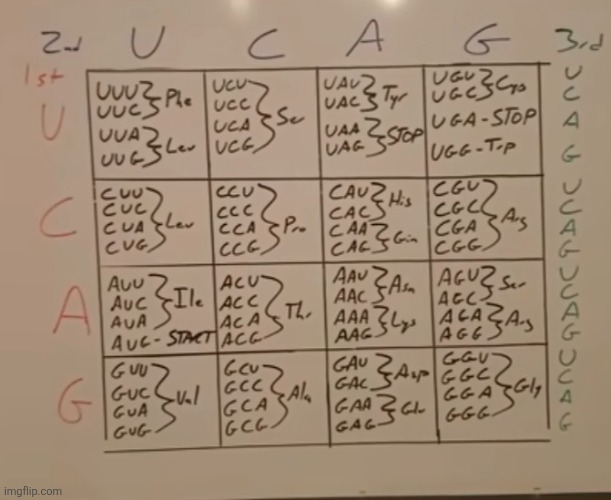 2nd U C A G 3rd
1st
U
UUU UUC Phe
UUA UUG Leu
UCU UCC UCA UCG Ser
UAU UAC Tyr
UAA UAG STOP
UGU UGC Cys
UGA - STOP
UGG - Trp
U
C
A
G
C
CUU CUC CUA CUG Leu
CCU CCC CCA CCG Pro
CAU CAC His
CAA CAG Gln
CGU CGC CGA CGG Arg
U
C
A
G
A
AUU AUC AUA Ile
AUG - START
ACU ACC ACA ACG Thr
AAU AAC Asn
AAA AAG Lys
AGU AGC Ser
AGA AGG Arg
U
C
A
G
G
GUU GUC GUA GUG Val
GCU GCC GCA GCG Ala
GAU GAC Asp
GAA GAG Glu
GGU GGC GGA GGG Gly
U
C
A
G
imgflip.com